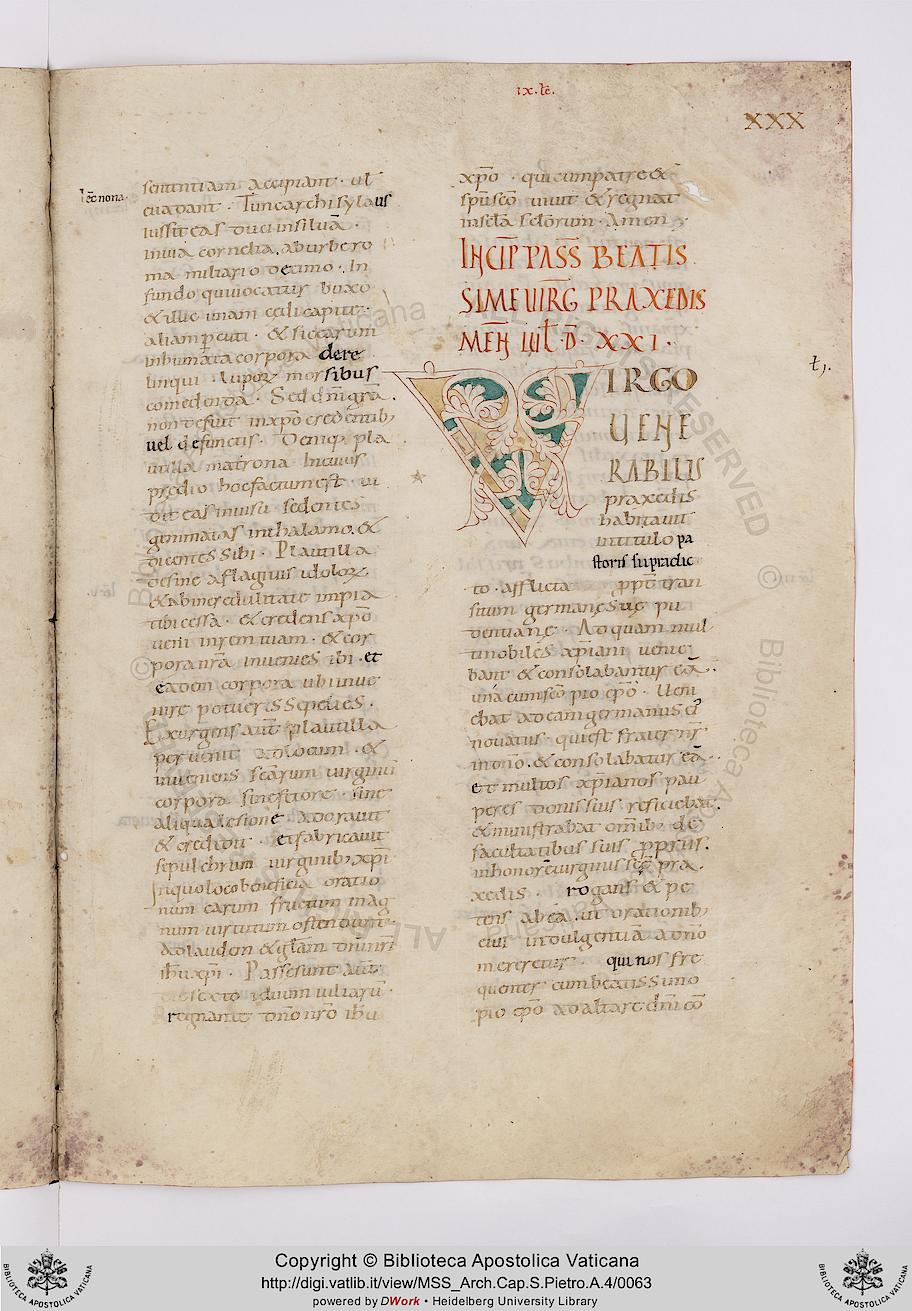 ix. lec̄.
XXX
lec̄ nona.
sententiam accipiant · vel
evadant · Tunc archisylaus
iussit eas duci in silvā ·
in via cornelia, ab urbe ro
ma miliario decimo · In
fundo qui vocatur buxo
& illic unam
aliam pcuti · & sic earum
inhumata corpora dere
linqui · luporum morsibus
comedenda · Sed dn̄i gr̄a
non defuit in xp̄o credentib;
vel defunctis · Deniq; pla
utilla matrona In cuius
predio hoc factum est · vi
dit eas in visu sedentes
gemmatas in thalamo · &
dicentes sibi · Plautilla
desine a flagitiis idolorum
& ab incredulitate impia
tibi cessa · & credens xp̄o
veni in rem tuam · & cor
pora nr̄a invenies ibi · et
eadem corpora ubi inve
nire potueris sepelies ·
Exurgens aut̄ plautilla
pervenit ad locum · &
inveniens sc̄arum virginū
corpora sine fetore · sine
aliqua lesione adoravit
& credidit · et fabricavit
sepulchrum virginib; xp̄i
In quo loco beneficia oratio
num earum fructum mag
num virtutum ostendunt ·
ad laudem & glām dn̄i nr̄i
ih̄u xp̄i · Passe sunt aut̄
die sexto iduum iuliarū ·
regnante dn̄o nr̄o ih̄u
xp̄o · qui cum patre &
sp̄u sc̄o vivit & regnat
in sc̄la sc̄lorum · Amen
INCIP PASS BEATIS
SIME VIRG PRAXEDIS
MEN IUL D̄ · XXI ·
t̄j.
VIRGO
VENE
RABILIS
praxedis
habitavit
in titulo pa
storis supradic
to · afflicta ppt̄ tran
situm germanę suę pu
dentianę · Ad quam mul
ti nobiles xp̄iani venie
bant & consolabantur eā ·
unā cum sc̄o pio ep̄o · Veni
ebat ad eam germanus ei'
novatus · qui est frater nr̄
in dn̄o · & consolabatur eā ·
et multos xp̄ianos pau
peres donis suis reficiebat
& ministrabat omīb; de
facultatibus suis ppriis ·
in honore virginis sc̄ę pra
xedis · rogans & pe
tens ab ea · ut orationib;
eius indulgentiā a dn̄o
mereretur · qui nos fre
quenter cum beatissimo
pio ep̄o ad altare dn̄i cō
Copyright © Biblioteca Apostolica Vaticana
http://digi.vatlib.it/view/MSS_Arch.Cap.S.Pietro.A.4/0063
powered by DWork • Heidelberg University Library